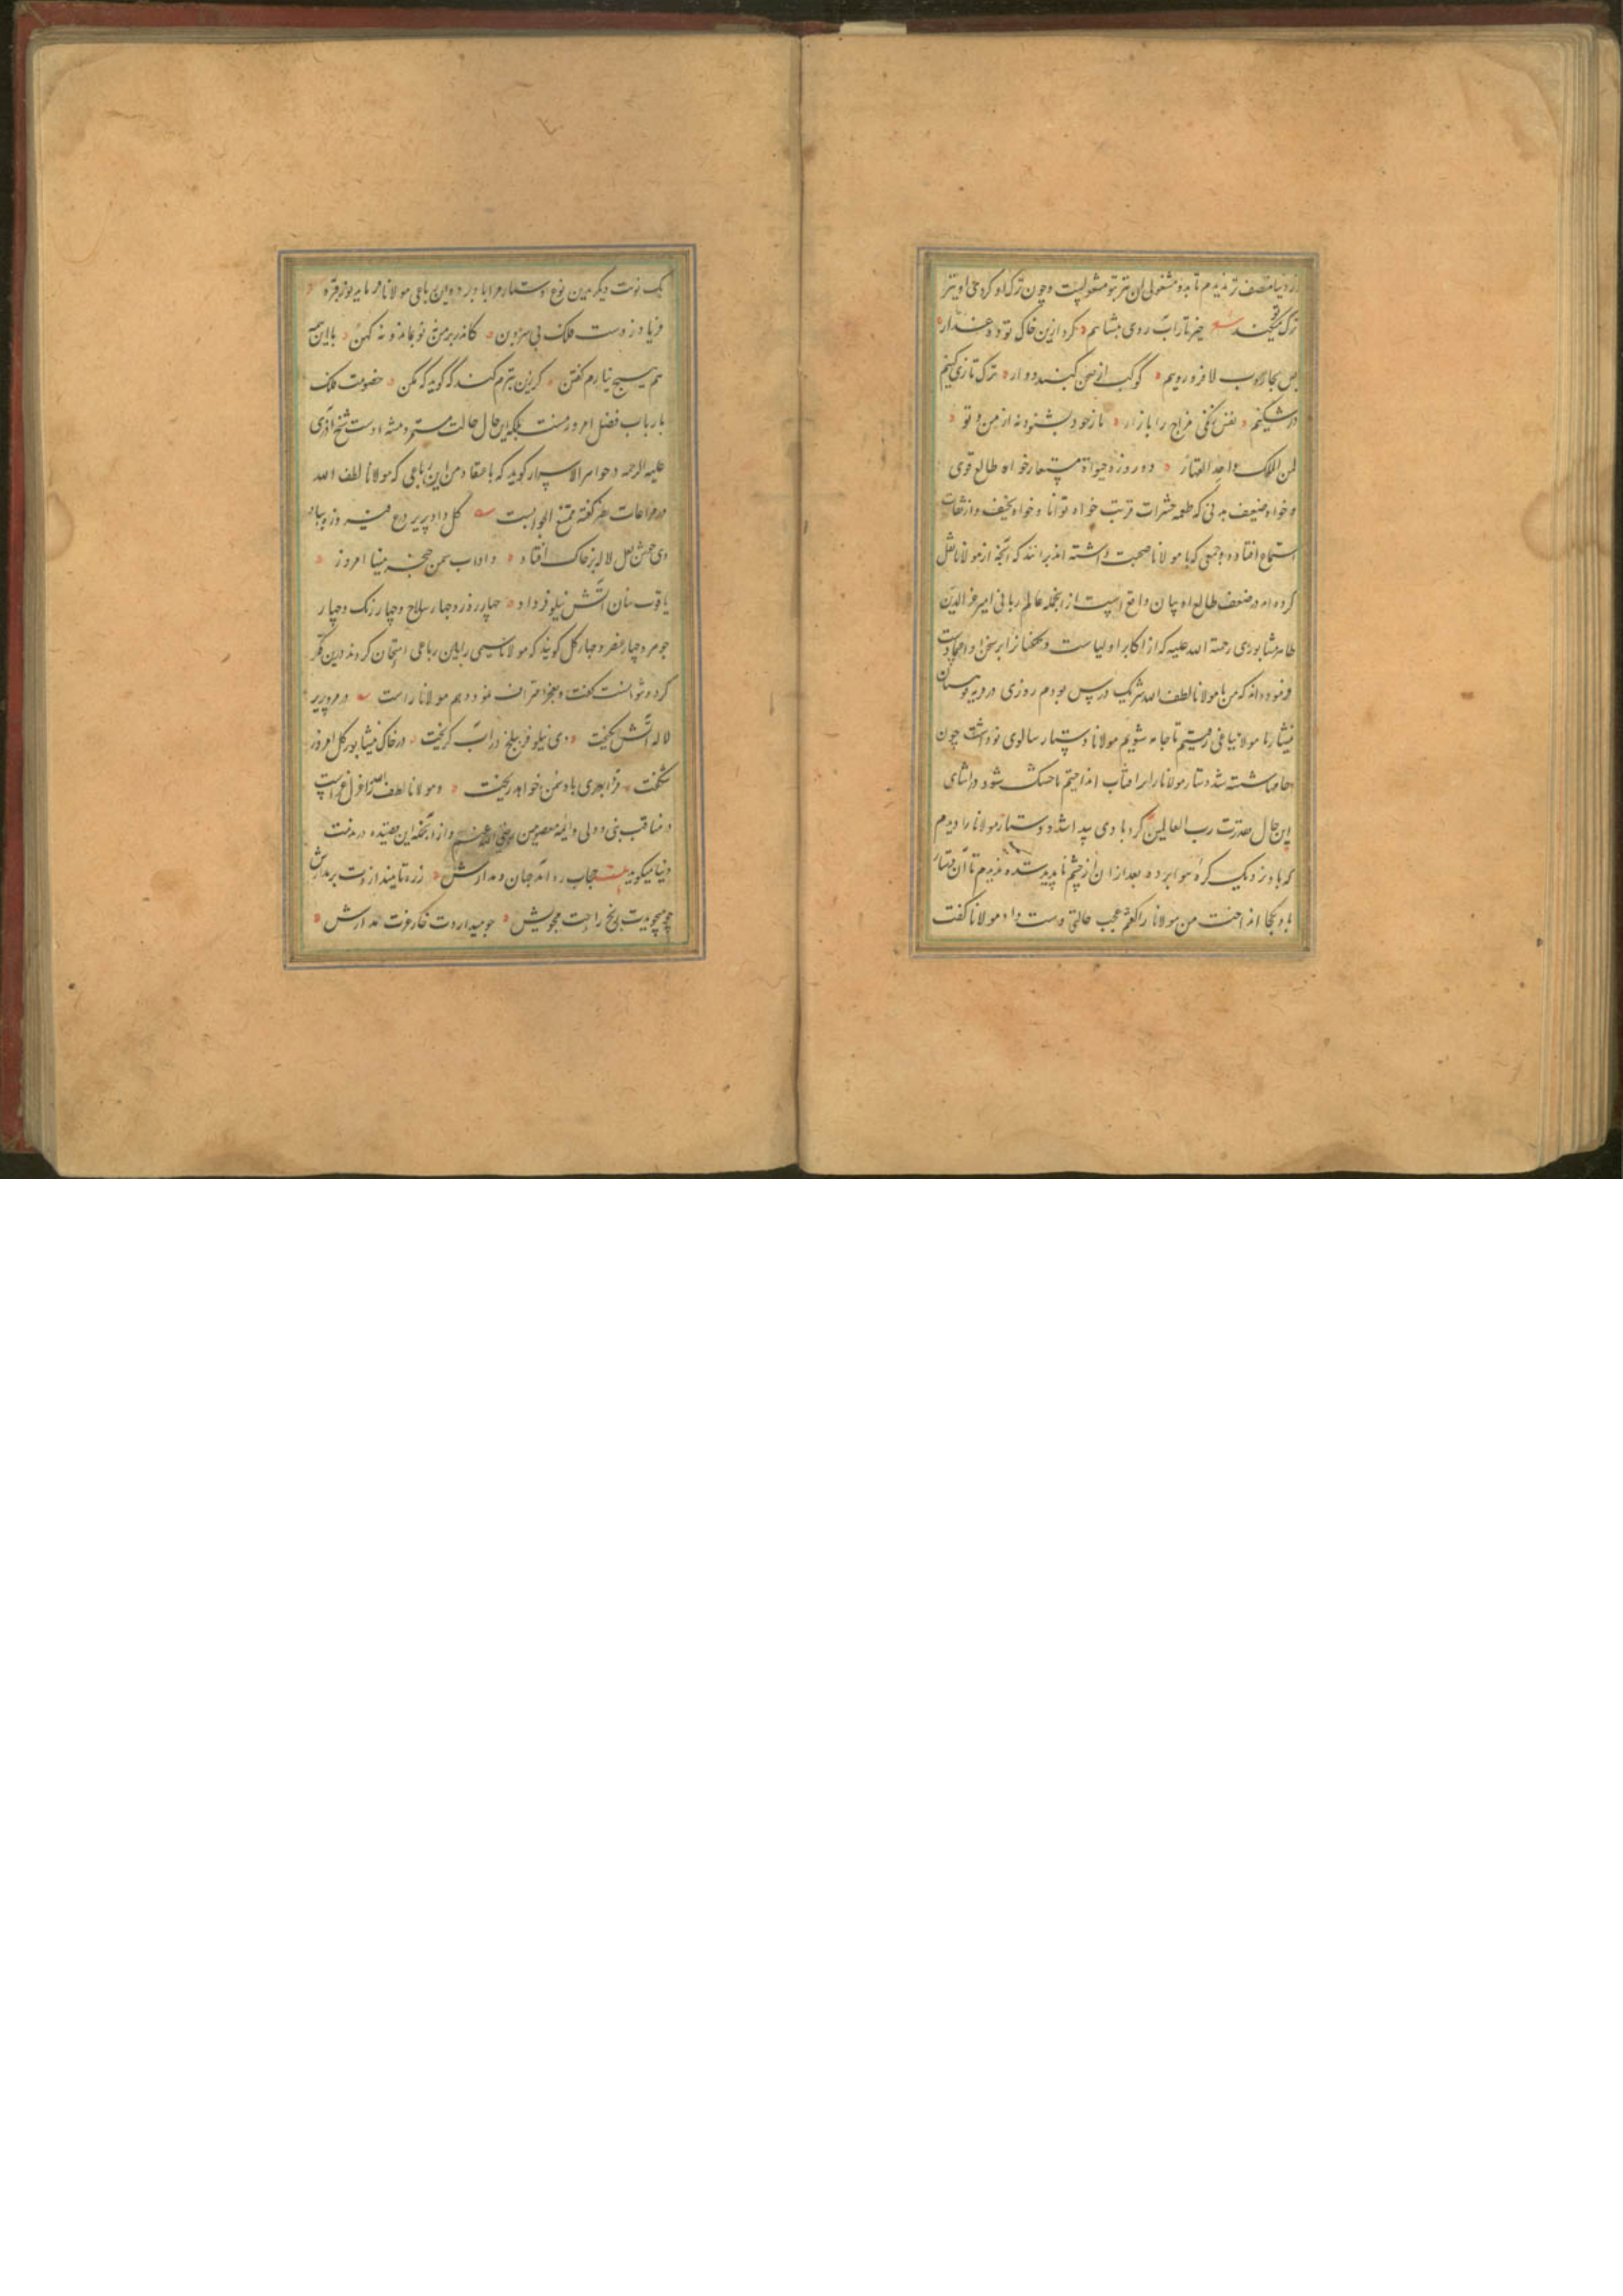 از دنیا منصف‌تر ندیدم تا بدو مشغولی او نیز بتو مشغولست و چون ترک او کردی او نیز
ترک تو میکند شعر خیز تا زاب روی بنشانیم گرد ازین خاک توده غدار
پس بجاروب لا فرو روبیم کوکب از صحن گنبد دوار ترک تازی کنیم
در شکنیم نفس زنگی مزاج را بازار تا ز خود بشنود نه از من و تو
لمن الملک واحد القهار دو روزه حیوة مستعار خواه طالع قوی
و خواه ضعیف بدنی که طعمه حشرات تربت خواه توانا و خواه نحیف و از ثقات
استماع افتاده و جمعی که با مولانا صحبت داشته اند برانند که آنچه از مولانا نقل
کرده اند در ضعف طالع او بیان واقع است از انجمله عالم ربانی امیر عز الدین
طاهر نشابوری رحمة الله علیه که از اکابر اولیاست و سخنان ازابر سخن او
فرموده اند که من با مولانا لطف الله شریک درس بودم روزی در دیه
نیشابور با مولانا بباغی رفتیم تا جامه شویم مولانا دستار سالوی نو داشت چون
جامها شسته شد دستار مولانا را برافتاب انداختیم تا خشک شود در اثنای
این حال بقدرت رب العالمین گردبادی پیدا شد و دستار مولانا را دیدم
که باد نزدیک کره هوا برده بعد از ان از چشم ناپدید شده ندیدم تا آن دستار
باد بکجا انداخت من مولانا را گفتم عجب حالتی دست داد مولانا گفت
یک نوبت دیگر بدین نوع دستار مرا باد برد و این رباعی مولانا فرماید
فریاد ز دست فلک بی سر و بن کاندر بر من نه نو بماند و نه کهن با این همه
هم هیچ نیارم گفتن گر زین بترم کند که گوید که مکن خصومت فلک
با ارباب فضل امروز نیست بلکه این حال حالت مستمره و شیخ آذری
علیه الرحمه در جواهر الاسرار گوید که باعتقاد من این رباعی که مولانا لطف الله
در مراعات نظیر گفته ممتنع الجوابست گل داد پریر درع فیروزه بباد
دی جوشن لعل لاله بر خاک افتاد داد اب سمن خنجر مینا امروز
یاقوت سنان آتش نیلوفر داد چهار روز و چهار سلاح و چهار رنگ و چهار
جوهر و چهار عنصر و چهار گل گویند که مولانا نسیمی را باین رباعی امتحان کردند درین فکر
کرد و نتوانست گفت و بعجز اعتراف نمود و هم مولانا راست در مرو پریر
لاله آتش انگیخت دی نیلوفر ببلخ در آب گریخت در خاک نیشابور گل امروز
شکفت فردا بهری باد سمن خواهد ریخت و مولانا لطف الله را
در مناقب نبی و ولی و ائمه معصومین رضی الله عنهم و از انجمله این قصیده در مذمت
دنیا میگوید حجاب ره آمد جهان و مدارش ز ره تا نیندازدت بر مدارش
چو میجویدت رنج راحت مجویش چو میداردت خار عزت مدارش